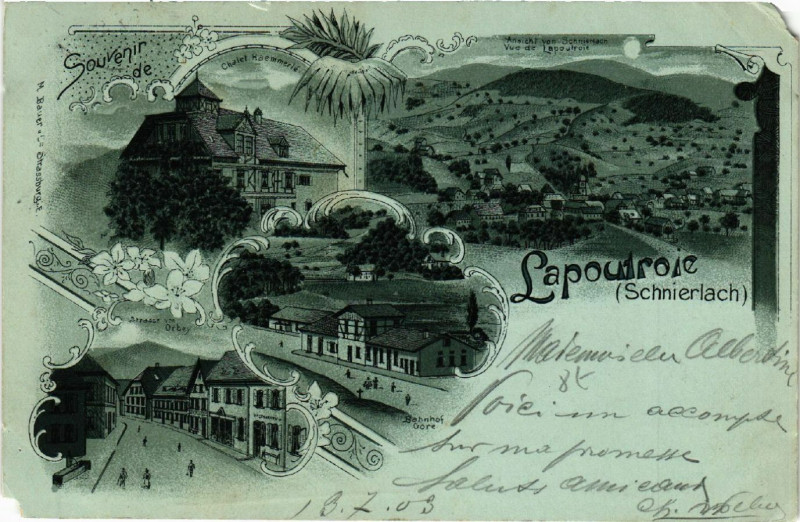 Souvenir
de
Chalet Kaemmerlé
Ansicht von Schnierlach
Vue de Lapoutroie
M. Bauer & Cie Strassburg i/E.
Lapoutroie
(Schnierlach)
Strasse in
Orbey
Bahnhof
Gare
Mademoiselle Albertine
Voici un accompte
sur ma promesse
Saluts amicaux
13.7.03